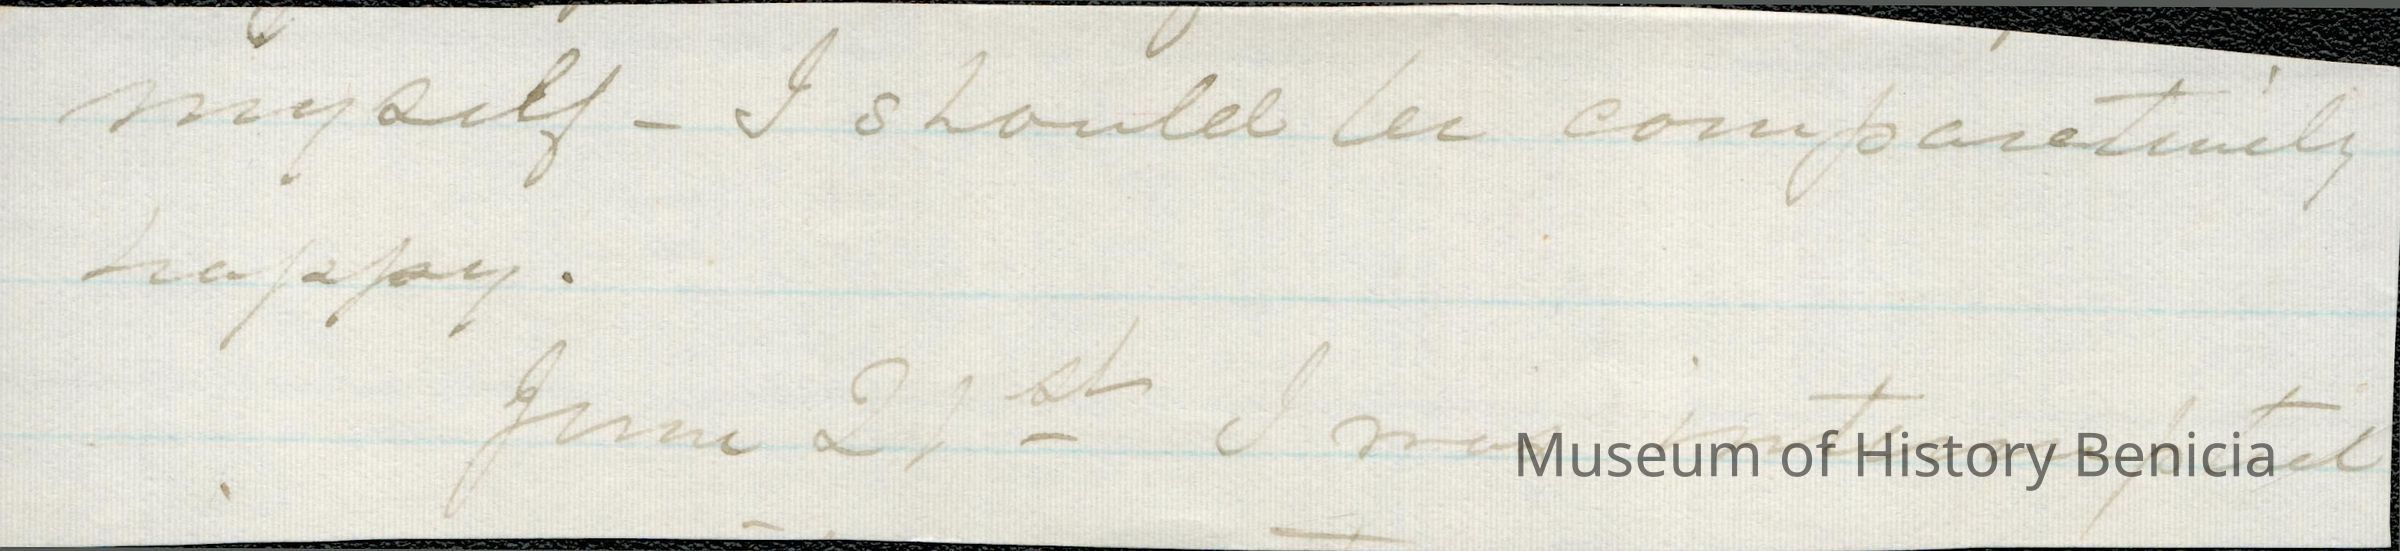 myself - I should be comparatively
happy.
June 21st I was interrupted
Museum of History Benicia